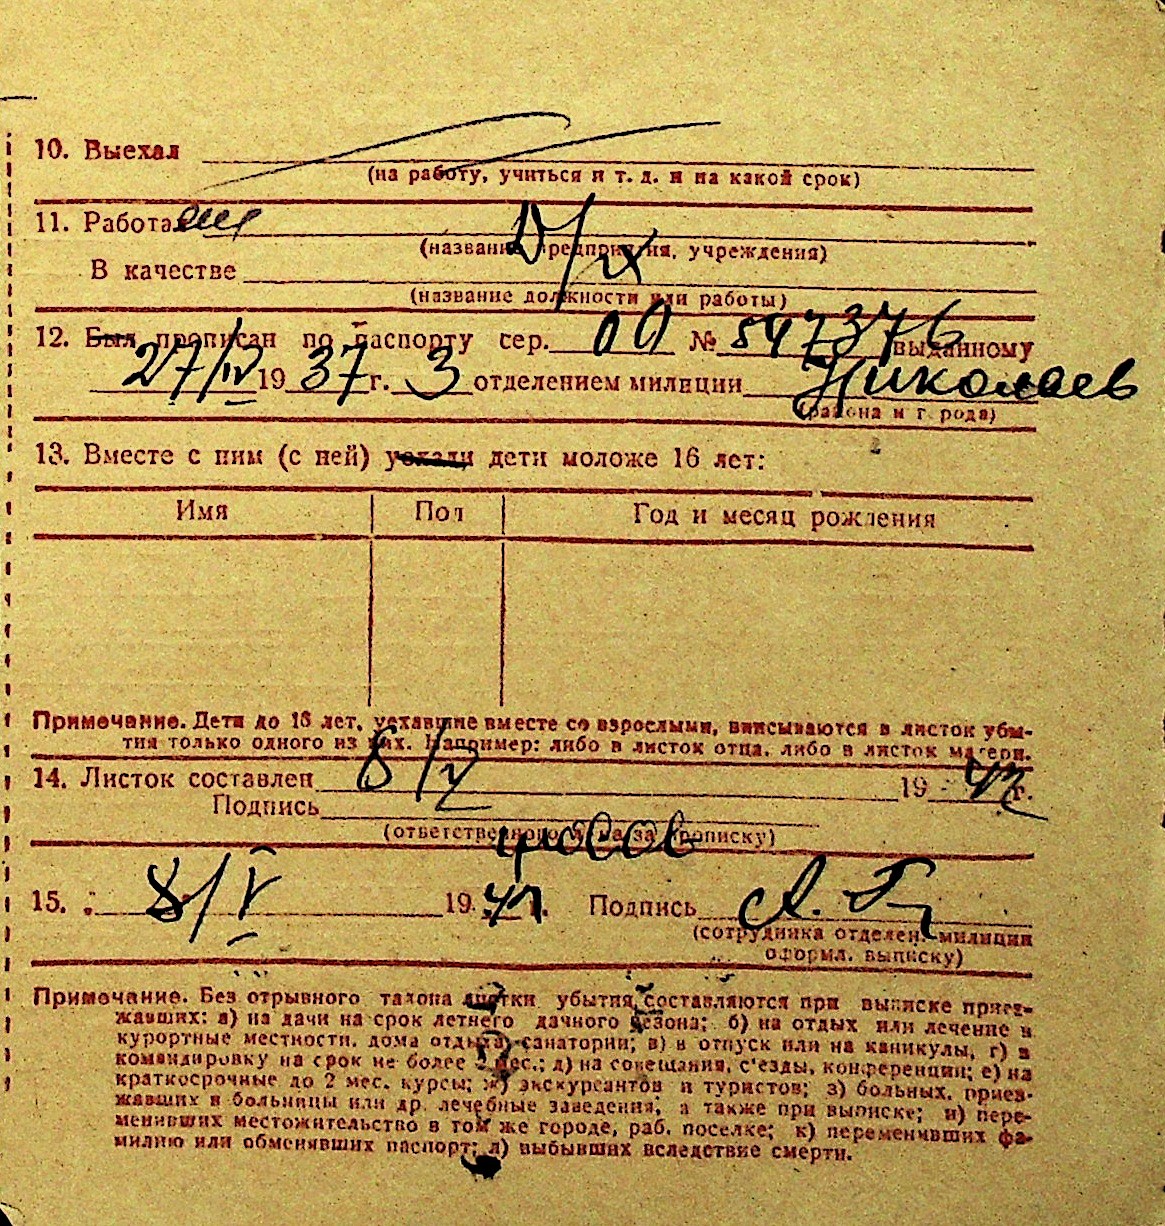 10. Выехал
(на работу, учиться и т. д. и на какой срок)
11. Работа
Д/х
(название предприятия, учреждения)
В качестве
(название должности или работы)
12. Был прописан по паспорту сер. 00 № 547376 выданному
27/IV 1937 г. 3 отделением милиции Николаев
(района и г рода)
13. Вместе с ним (с ней) уехали дети моложе 16 лет:
Имя Пол Год и месяц рождения
Примечание. Дети до 16 лет, уехавшие вместе со взрослыми, вписываются в листок убы-
тия только одного из них. Например: либо в листок отца, либо в листок матери.
14. Листок составлен 6/V 1941 г.
Подпись
(ответственного лица за прописку)
15. 8/V 1941 г. Подпись
(сотрудника отделен. милиции
оформл. выписку)
Примечание. Без отрывного талона листки убытия составляются при выписке приез-
жавших: а) на дачи на срок летнего дачного сезона; б) на отдых или лечение в
курортные местности, дома отдыха, санатории; в) в отпуск или на каникулы, г) в
командировку на срок не более 2 мес.; д) на совещания, с'езды, конференции; е) на
краткосрочные до 2 мес. курсы; ж) экскурсантов и туристов; з) больных, приез-
жавших в больницы или др. лечебные заведения, а также при выписке; и) пере-
менивших местожительство в том же городе, раб. поселке; к) переменивших фа-
милию или обменявших паспорт; л) выбывших вследствие смерти.